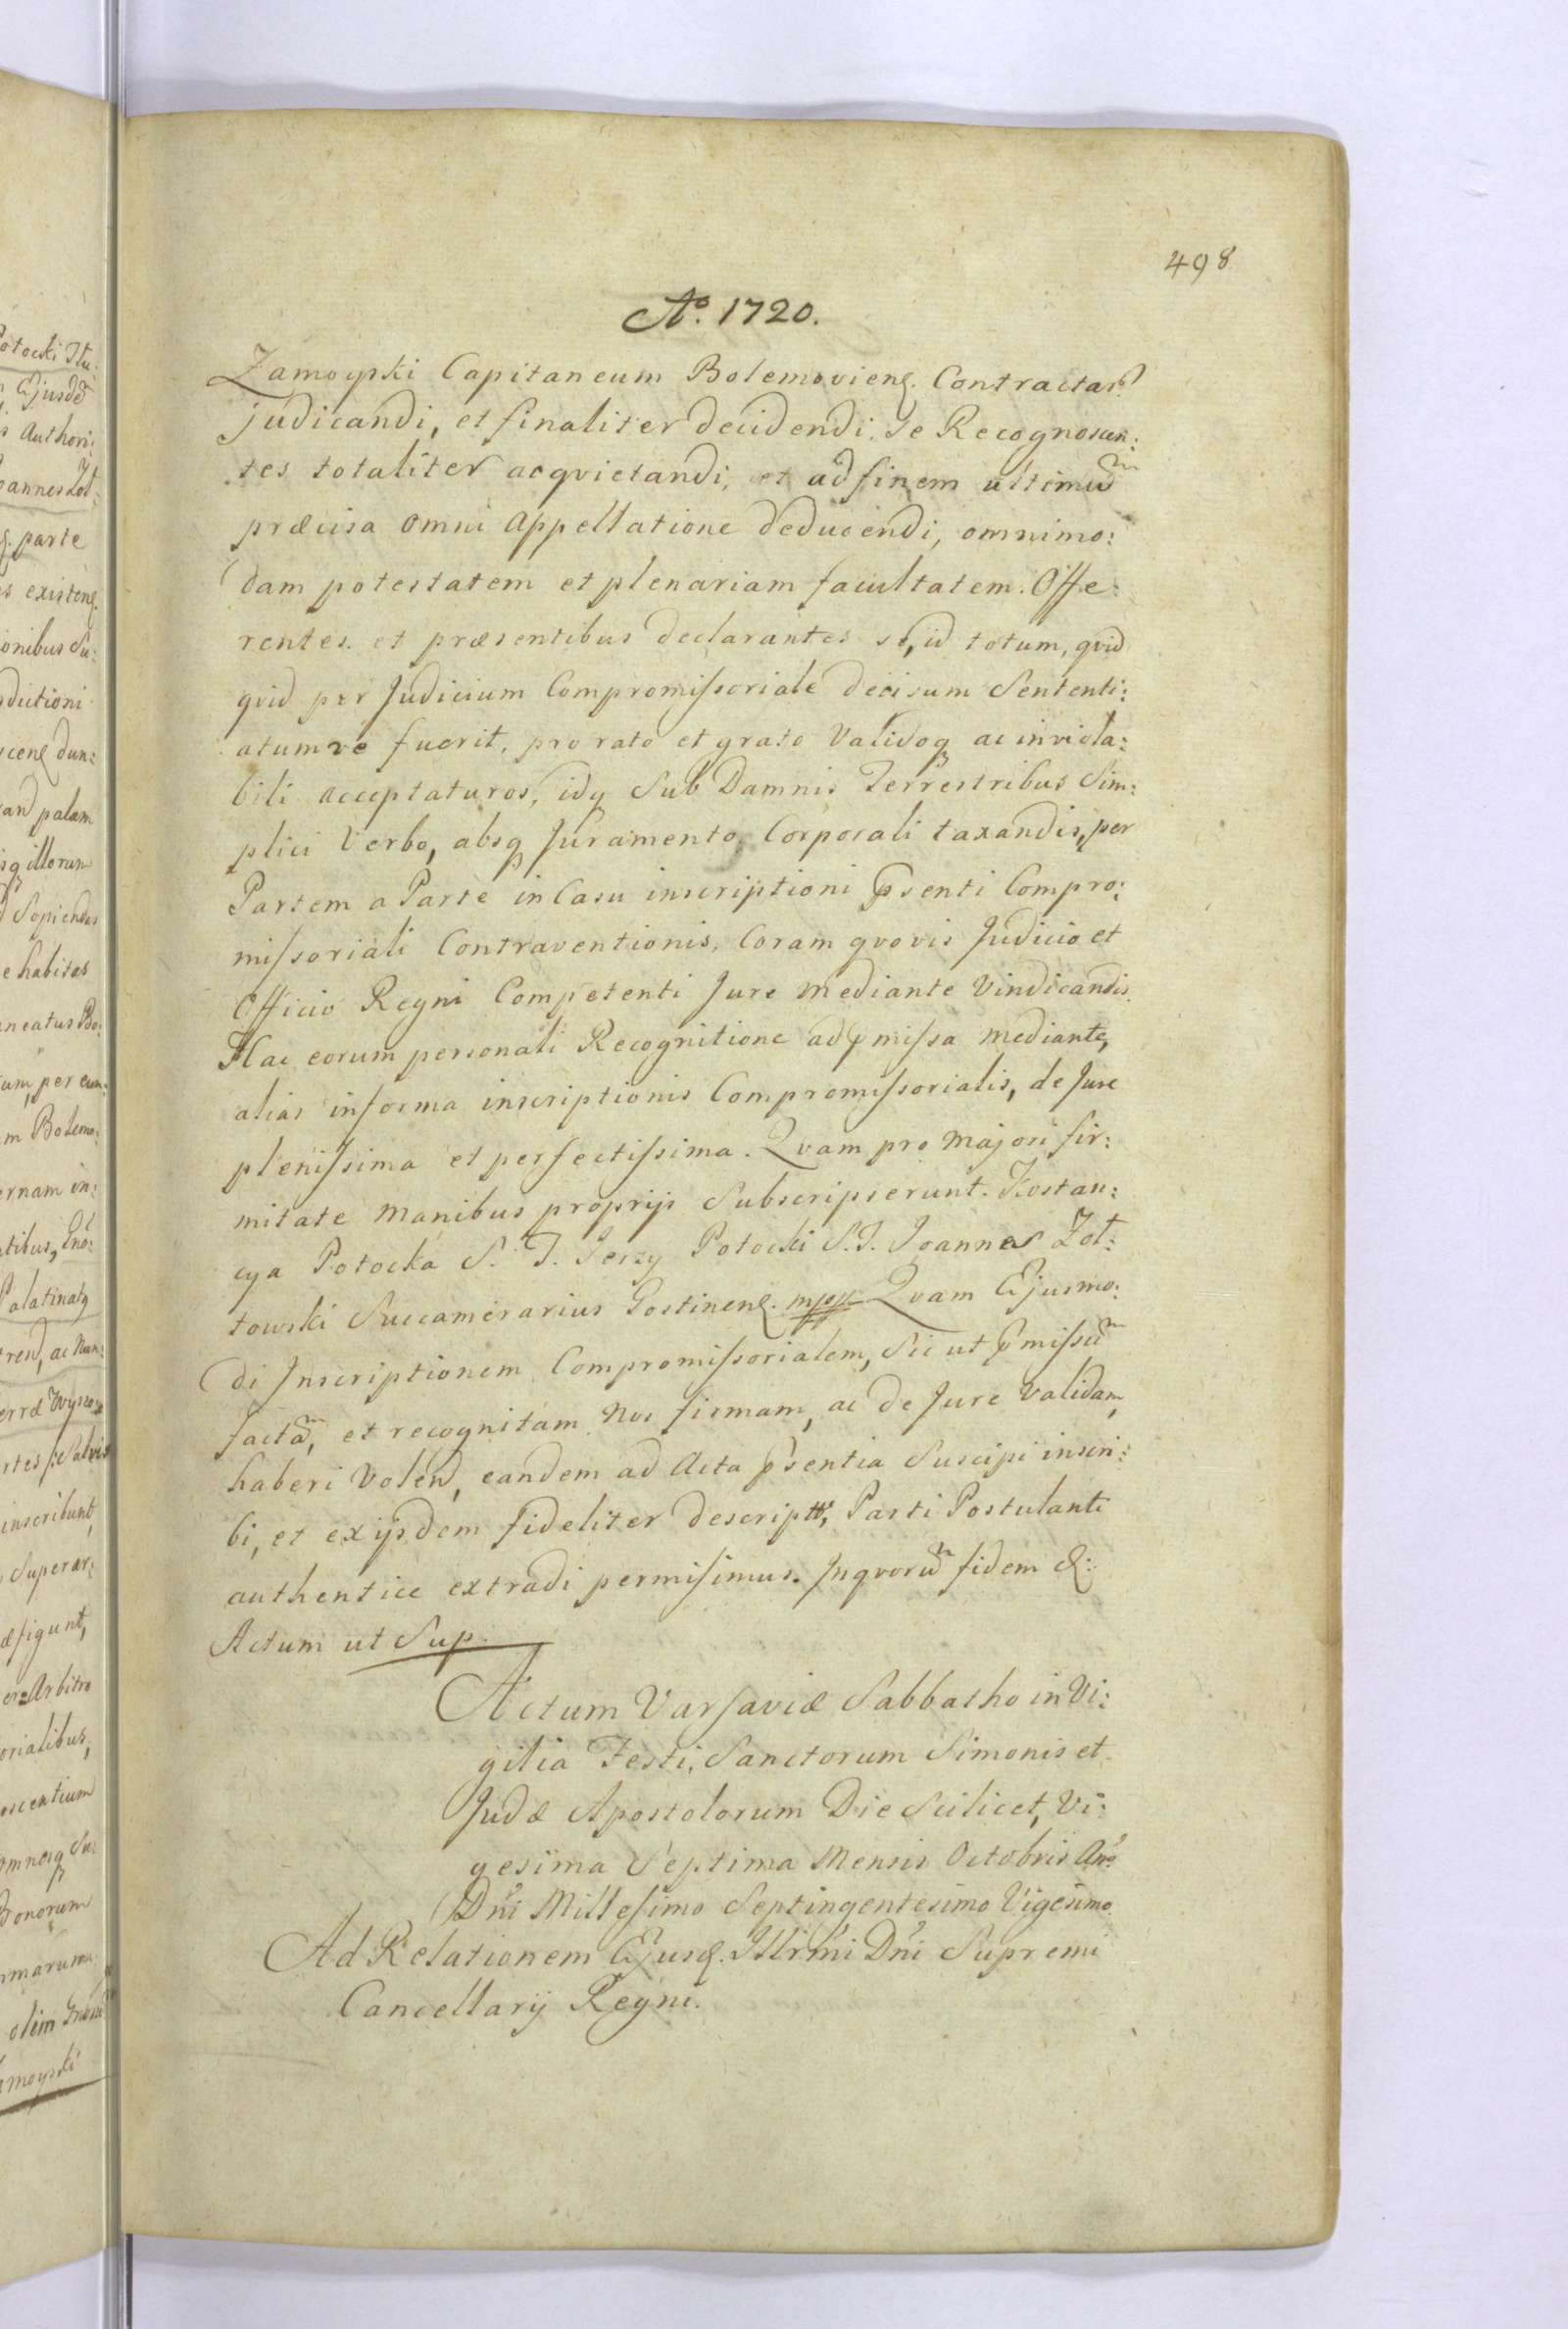 498
Aº. 1720.
Zamoyski Capitaneum Bolemoviens. Contractar.
judicandi, et finaliter decidendi, se Recognoscen:
tes totaliter acqvietandi, et ad finem ultimu͠
præcisa omni Appellatione deducendi, omnimo:
dam potestatem et plenariam facultatem. Offe:
rentes. et præsentibus declarantes se, id totum, qvid
qvid per Judicium Compromissoriale decisum Sententi:
atumve fuerit, pro rato et grato Validoq ac inviola:
bili acceptaturos, idq Sub Damnis Terrestribus Sim:
plici Verbo, absq Juramento Corporali taxandis, per
Partem a Parte in Casu inscriptioni Psenti Compro:
missoriali Contraventionis, Coram qvovis Judicio et
Officio Regni Competenti Jure mediante Vindicandis.
Hac eorum personali Recognitione ad pmissa mediante,
alias in forma inscriptionis Compromissorialis, de Jure
plenissima et perfectissima. Qvam pro majori fir:
mitate manibus proprijs Subscripserunt. Kostan:
cya Potocka S. T. Jerzy Potocki S. T. Joannes Zoł:
towski Succamerarius Gostinens. mpp Qvam Ejusmo:
di Inscriptionem Compromissorialem, Sic ut pmissu͠
facta͠, et recognitam Nos firmam, ac de Jure validam,
haberi Volen, eandem ad Acta Psentia Suscipi inscri:
bi, et ex ijsdem fideliter descript, Parti Postulanti
authentice extradi permisimus. In qvoru͠ fidem &:
Actum ut Sup.
Actum Varsaviæ Sabbatho in Vi:
gilia Festi, Sanctorum Simonis et
Judæ Apostolorum Die Scilicet, Vi:
gesima Septima Mensis Octobris Anº
Dni Millesimo Septingentesimo Vigesimo.
Ad Relationem Ejusd. Illrmi Dni Supremi
Cancellarij Regni.